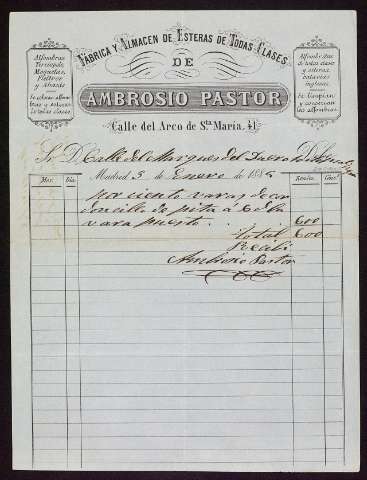 FÁBRICA Y ALMACEN DE ESTERAS DE TODAS CLASES
DE
AMBROSIO PASTOR
Calle del Arco de Sta. María, 41
Alfombras
Terciopelo,
Moquetas,
Fieltros
y Abacás
Alfombras
de todas clases
y esteras
Se limpian
y conservan
las alfombras
Sr. D. Calle del Marques del Duero
Madrid 3 de Enero de 188
Mes. Día. Reales. Cénts.
por ciento varas de cor
doncillo de pita á 6 la
vara puesto 600
total 600
Recibí
Ambrosio Pastor